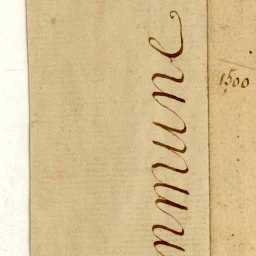 mmune
1500